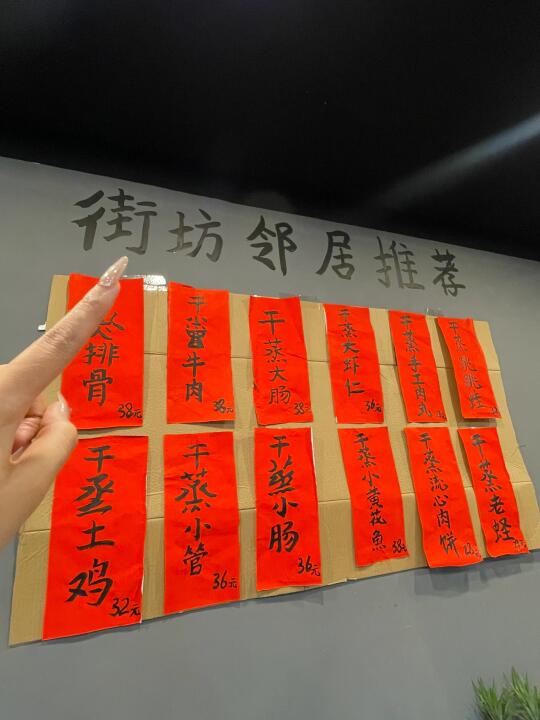 街坊邻居推荐
排骨
38元
干曾牛肉
38元
干蒸大肠
38元
干蒸大虾仁
36元
干蒸手工肉丸
干蒸跳跳蛙
干烝土鸡
32元
干蒸小管
36元
干蒸小肠
36元
干蒸小黄花魚
38元
干蒸流心肉饼
干蒸老蛏